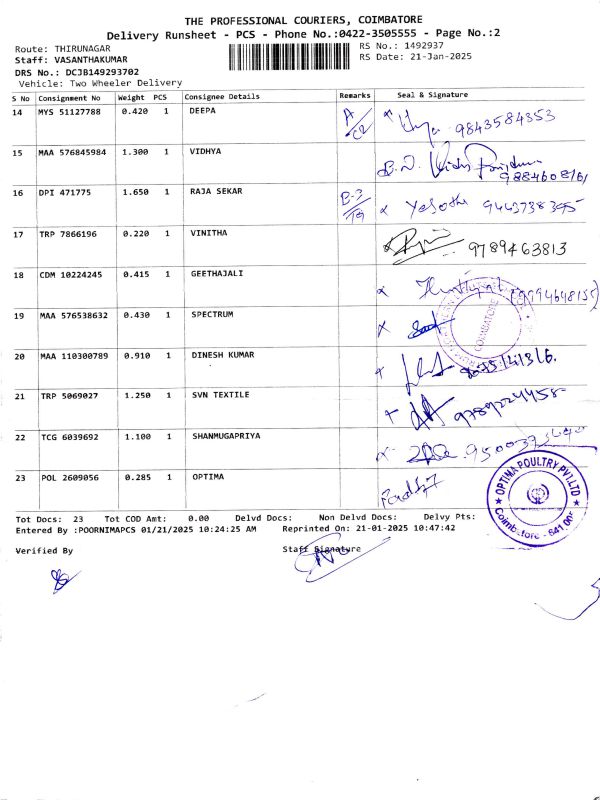 THE PROFESSIONAL COURIERS, COIMBATORE
Delivery Runsheet - PCS - Phone No.:0422-3505555 - Page No.:2
Route: THIRUNAGAR RS No.: 1492937
Staff: VASANTHAKUMAR RS Date: 21-Jan-2025
DRS No.: DCJB149293702
Vehicle: Two Wheeler Delivery
S No Consignment No Weight PCS Consignee Details Remarks Seal & Signature
14 MYS 51127788 0.420 1 DEEPA A/C2 9843584353
15 MAA 576845984 1.300 1 VIDHYA 9884608161
16 DPI 471775 1.650 1 RAJA SEKAR B-3 9443738395
17 TRP 7866196 0.220 1 VINITHA 9789463813
18 CDM 10224245 0.415 1 GEETHAJALI
19 MAA 576538632 0.430 1 SPECTRUM COIMBATORE
20 MAA 110300789 0.910 1 DINESH KUMAR
21 TRP 5069027 1.250 1 SVN TEXTILE
22 TCG 6039692 1.100 1 SHANMUGAPRIYA
23 POL 2609056 0.285 1 OPTIMA
OPTIMA POULTRY PVT.LTD
Coimbatore - 641 005
Tot Docs: 23 Tot COD Amt: 0.00 Delvd Docs: Non Delvd Docs: Delvy Pts:
Entered By :POORNIMAPCS 01/21/2025 10:24:25 AM Reprinted On: 21-01-2025 10:47:42
Verified By Staff Signature